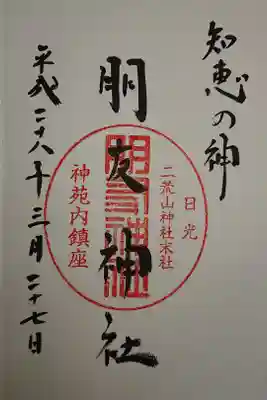 知恵の神
朋友神社
日光
二荒山神社末社
朋友神社
神苑内鎮座
平成二十八年三月二十七日